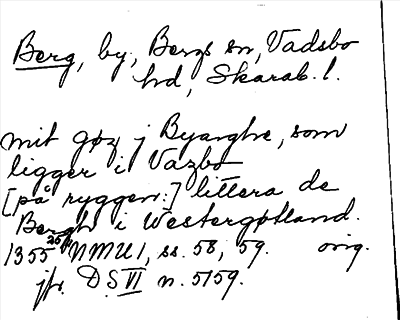 Berg, by, Bergs sn, Vadsbo
hd, Skarab. l.
mit gøz j Byærghe, som
ligger i Vazbo
[på ryggen:] littera de
Bergh i Westergøtland.
1355 25/1 NMU 1, ss. 58, 59. orig.
jfr. DS VI n. 5159.